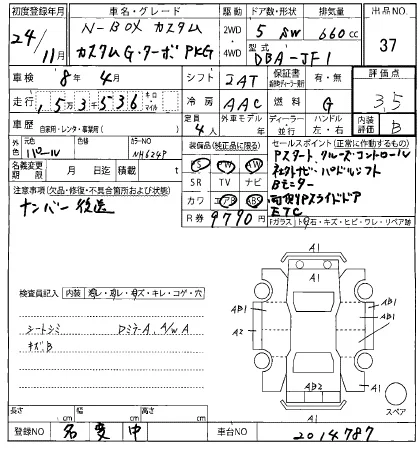 初度登録年月 車名・グレード 駆動 ドア数・形状 排気量 出品NO
24/11月 N-BOX カスタム 2WD 5 SW 660cc 37
カスタムG・ターボPKG 4WD 型式 DBA-JF1
車検 8年 4月 シフト IAT 保証書 有・無 評価点
走行 153536 キロ・マイル 冷房 AAC 燃料 G 3.5
車歴 自家用・レンタ・事業用( ) 定員 4人 外車モデル年 ディーラー・並行 ハンドル 左・右 内装評価 B
外色 元色 パール 色替 カラーNO NH624P
装備品(純正品に限る) セールスポイント(正常に作動するもの)
名義変更期限 月 日 積載量 t
PS PW Pスタート クルーズコントロール
SR TV ナビ ネットナビ・パドルシフト
Bモニター
カワ エアB ABS 両側Pスライドドア
ETC
R券 9790 Fガラス 石・キズ・ヒビ・ワレ・リペア跡
注意事項(欠品・修復・不具合箇所および状態)
ナンバー後送
検査員記入 内装 コゲ・穴
シートシミ Dミラー A, A/W A
キズ B
A1
AB1 AB1
A2 A1
A1
AB2 A1
スペア
長さ cm 幅 cm 高さ cm
登録NO 名変中 車台NO 2014787